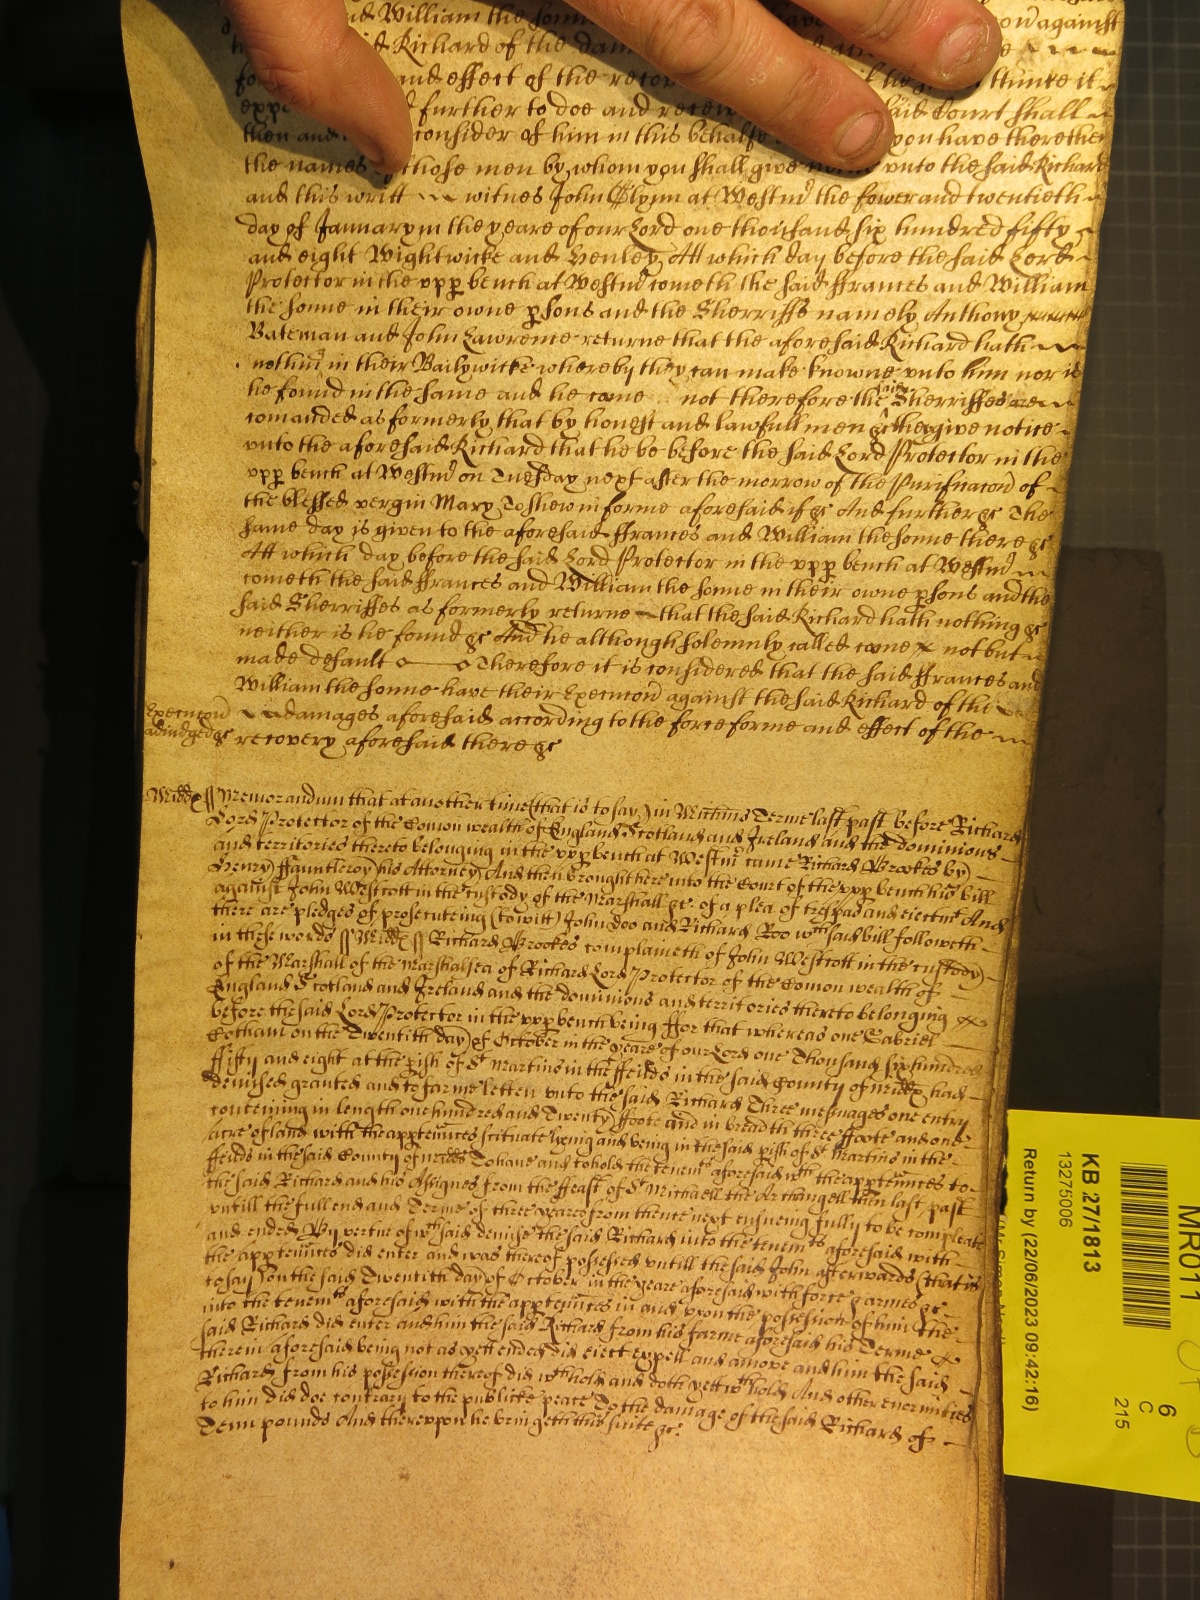 said William the sonne have on against
said Richard of the dam
and effect of the recov
further to doe and receive said Court shall
then and consider of him in this behalfe you have there then
the names of those men by whom you shall give unto the said Richard
and this writt witnes John Glynn at Westm̃ the fower and twentieth
day of January in the yeare of our Lord one thousand six hundred fifty
and eight Wightwicke and Henley Att which day before the said Lord
Protector in the upp bench at Westm̃ cometh the said ffrances and William
the sonne in their owne psons and the Sherriffs namely Anthony
Bateman and John Lawrence returne that the aforesaid Richard hath
nothing in their Bailywicke whereby they can make knowne unto him nor is
he found in the same and he come not therefore the said Sherriffes are
comanded as formerly that by honest and lawfull men &c they give notice
unto the aforesaid Richard that he be before the said Lord Protector in the
upp bench at Westm̃ on Tuesday next after the morrow of the Purificacon of
the blessed vergin Mary To shew in forme aforesaid if &c And further &c The
same day is given to the aforesaid ffrances and William the sonne there &c
Att which day before the said Lord Protector in the upp bench at Westm̃
cometh the said ffrances and William the sonne in their owne psons and the
said Sherriffes as formerly returne that the said Richard hath nothing &c
neither is he found &c And he although solemnly called come not but
made default Therefore it is considered that the said ffrances and
William the sonne have their Execucon against the said Richard of the
Execucon
adiudged &c
damages aforesaid according to the force forme and effect of the
recovery aforesaid there &c
Middx ss Memorandum that at another time (that is to say) in Michmas Terme last past before Richard
Lord Protector of the Comon wealth of England Scotland and Ireland and the dominions
and territories thereto belonging in the upp bench at Westm̃ came Richard Brookes by
Henry ffauntleroy his Attorney And then brought here into the Court of the upp bench his bill
against John Westcott in the custody of the Marshall &c of a plea of trespas and eiectmt And
there are pledges of prosecuteing (to witt) John Doo and Richard Roo wch said bill followeth
in these words ss Middx ss Richard Brookes complaineth of John Westcott in the custody
of the Marshall of the Marshalsea of Richard Lord Protector of the Comon wealth of
England Scotland and Ireland and the dominions and territories thereto belonging
before the said Lord Protector in the upp bench being ffor that whereas one Gabriel
Cotham on the Twentith day of October in the yeare of our Lord one Thousand six hundred
ffifty and eight at the pish of St Martins in the ffeilds in the said County of Middx had
demised granted and to farme letten unto the said Richard Three messuages one entry
conteining in length one hundred and Twenty ffoote and in breadth three ffoote and one
acre of land with the apptennces scituate lyeing and being in the said pish of St Martins in the
ffeilds in the said County of Middx To have and to hold the tenemts aforesaid wth the apptennces to
the said Richard and his Assignes from the ffeast of St Michaell the Archangell then last past
untill the full end and Terme of three yeares from thence next ensueing fully to be compleate
and ended By vertue of wch said demise the said Richard into the tenemts aforesaid with
the apptennces did enter and was thereof possessed untill the said John afterwards (that is
to say) on the said Twentith day of October in the yeare aforesaid with force & armes &c
into the tenemts aforesaid with the apptennces in and upon the possession of him the
said Richard did enter and him the said Richard from his farme aforesaid his Terme
therein aforesaid being not as yett ended did eiect expell and amove and him the said
Richard from his possession thereof did wth hold and doth yett wth hold And other enormities
to him did doe contrary to the publicke peace To the damage of the said Richard of
Tenn pounds And thereupon he bringeth this suite &c
MR011
KB 27/1813
13275006
Return by (22/06/2023 09:42:16)
6
C
215